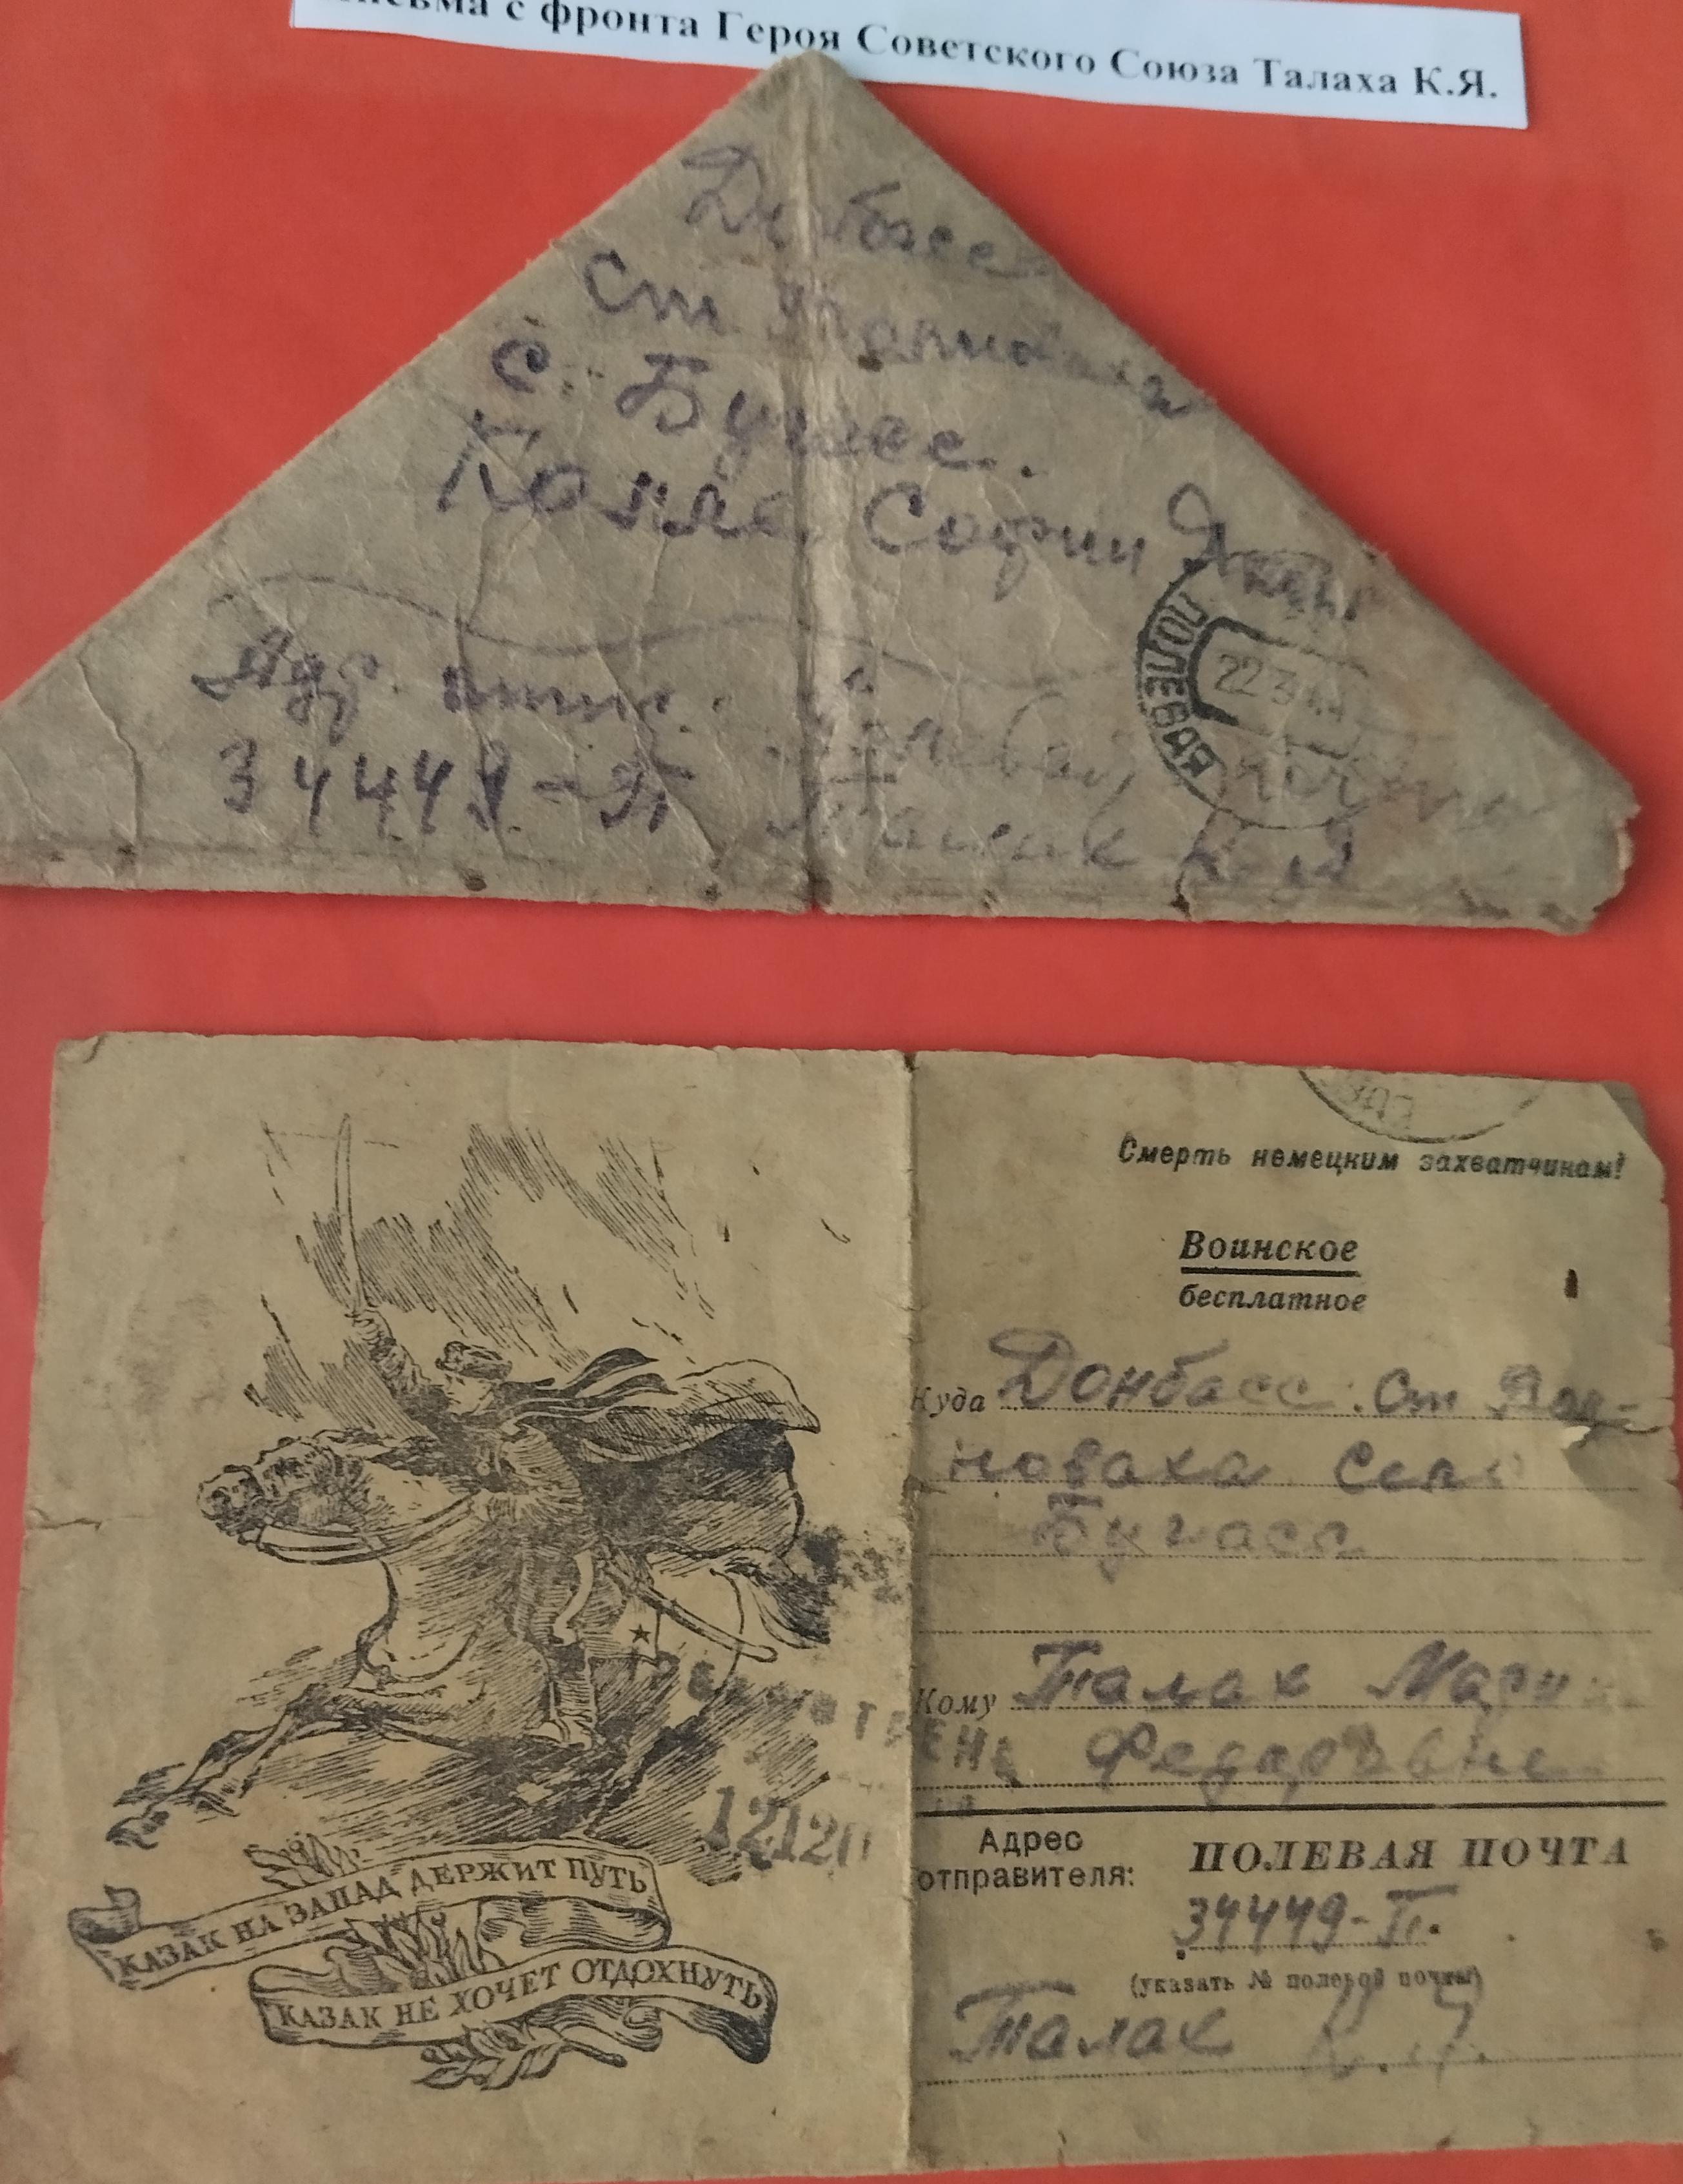 с фронта Героя Советского Союза Талаха К.Я.
Донбасс
Ст.
с. Бугас.
Софии
Адр. отпр.
34449-П
Талах К.Я
ПОЛЕВАЯ
22 3 44
Смерть немецким захватчикам!
Воинское
бесплатное
Куда Донбасс: Ст Вол-
новаха Село
Бугасс
Кому Талах Марии
Федаровне
12120
Адрес
отправителя:
ПОЛЕВАЯ ПОЧТА
34449-П.
(указать № полевой почты)
Талах К.Я.
КАЗАК НА ЗАПАД ДЕРЖИТ ПУТЬ
КАЗАК НЕ ХОЧЕТ ОТДОХНУТЬ